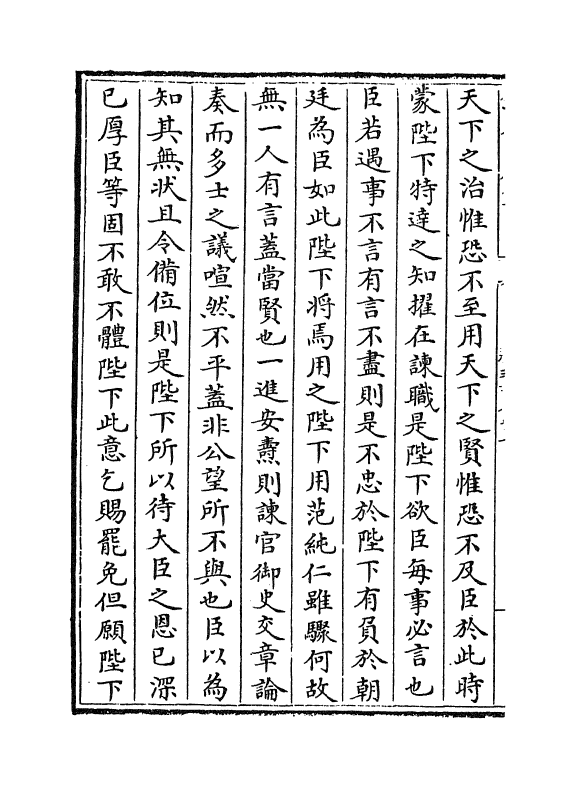 天下之治惟恐不至用天下之賢惟恐不及臣於此時
蒙陛下特達之知擢在諫職是陛下欲臣每事必言也
臣若遇事不言有言不盡則是不忠於陛下有負於朝
廷為臣如此陛下將焉用之陛下用范純仁雖驟何故
無一人有言蓋當賢也一進安燾則諫官御史交章論
奏而多士之議喧然不平蓋非公望所不與也臣以為
知其無狀且令備位則是陛下所以待大臣之恩已深
已厚臣等固不敢不體陛下此意乞賜罷免但願陛下